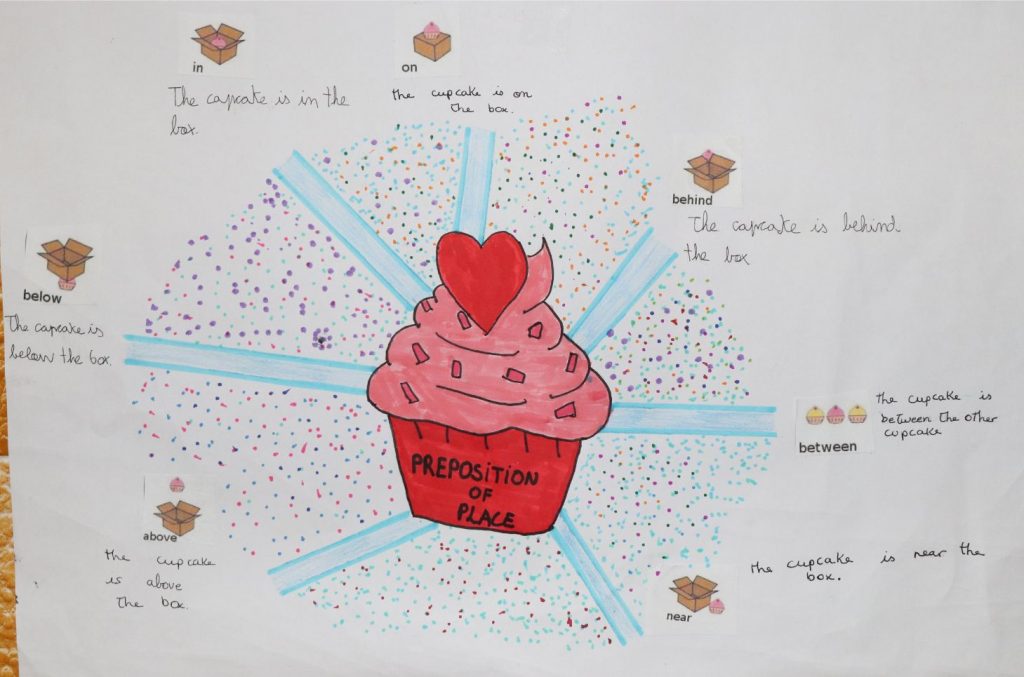 in
The capcake is in the
box.
on
the cupcake is on
the box.
behind
The capcake is behind
the box
below
The capcake is
below the box.
PREPOSITION
OF
PLACE
between
the cupcake is
between the other
cupcake
above
the cupcake
is above
the box.
near
the cupcake is near the
box.